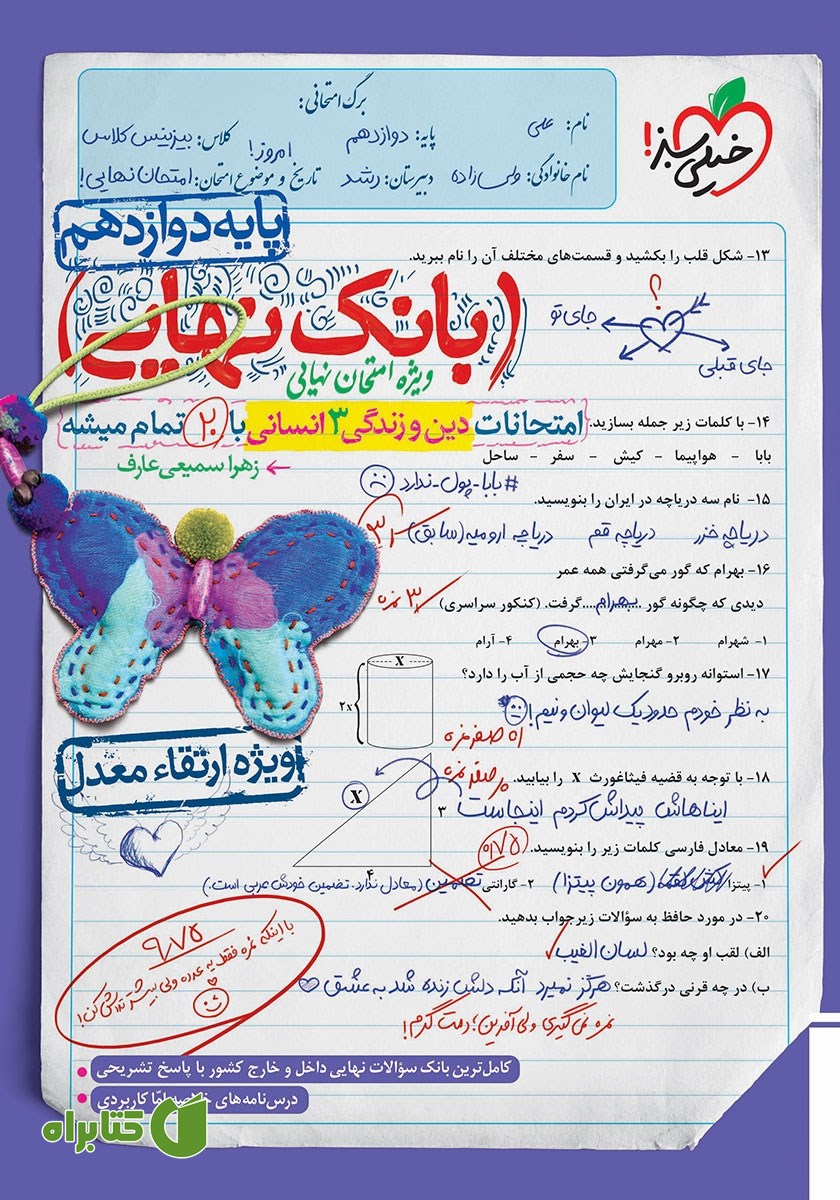 برگ امتحانی:
نام: علی
پایه: دوازدهم
کلاس: بیزینس کلاس
نام خانوادگی: ولی زاده
دبیرستان: رشد
تاریخ و موضوع امتحان: امروز! امتحان نهایی!
خیلی سبز!
پایه دوازدهم
(بانک نهایی)
ویژه امتحان نهایی
امتحانات دین و زندگی ۳ انسانی با ۲۰ تمام میشه
زهرا سمیعی عارف
۱۳- شکل قلب را بکشید و قسمت‌های مختلف آن را نام ببرید.
؟
جای تو
جای قبلی
۱۴- با کلمات زیر جمله بسازید.
بابا - هواپیما - کیش - سفر - ساحل
#بابا-پول-ندارد
۱۵- نام سه دریاچه در ایران را بنویسید.
دریاچه خزر دریاچه قم دریاچه ارومیه (سابق)
۱۶- بهرام که گور می‌گرفتی همه عمر
دیدی که چگونه گور ....بهرام.... گرفت. (کنکور سراسری)
۳ نمره
۱- شهرام ۲- مهرام ۳- بهرام ۴- آرام
۱۷- استوانه روبرو گنجایش چه حجمی از آب را دارد؟
X
2x
به نظر خودم حدود یک لیوان و نیم!
اه صفر نمره
۱۸- با توجه به قضیه فیثاغورث X را بیابید.
صفر نمره
X
۳
۴
ایناهاش پیداش کردم اینجاست
۱۹- معادل فارسی کلمات زیر را بنویسید.
۰/۷۵
۱- پیتزا (همون پیتزا) ۲- گارانتی تضمین (معادل ندارد. تضمین خودش عربی است.)
۲۰- در مورد حافظ به سؤالات زیر جواب بدهید.
الف) لقب او چه بود؟ لسان الغیب
ب) در چه قرنی درگذشت؟ هرگز نمیرد آنکه دلش زنده شد به عشق
نمره نمی‌گیری ولی آفرین؛ دمت گرم!
ویژه ارتقاء معدل
۹/۷۵
با اینکه نمره فقط یه عدده ولی بیشتر تلاش کن!
کامل‌ترین بانک سؤالات نهایی داخل و خارج کشور با پاسخ تشریحی
درس‌نامه‌های امّا کاربردی
کتابراه